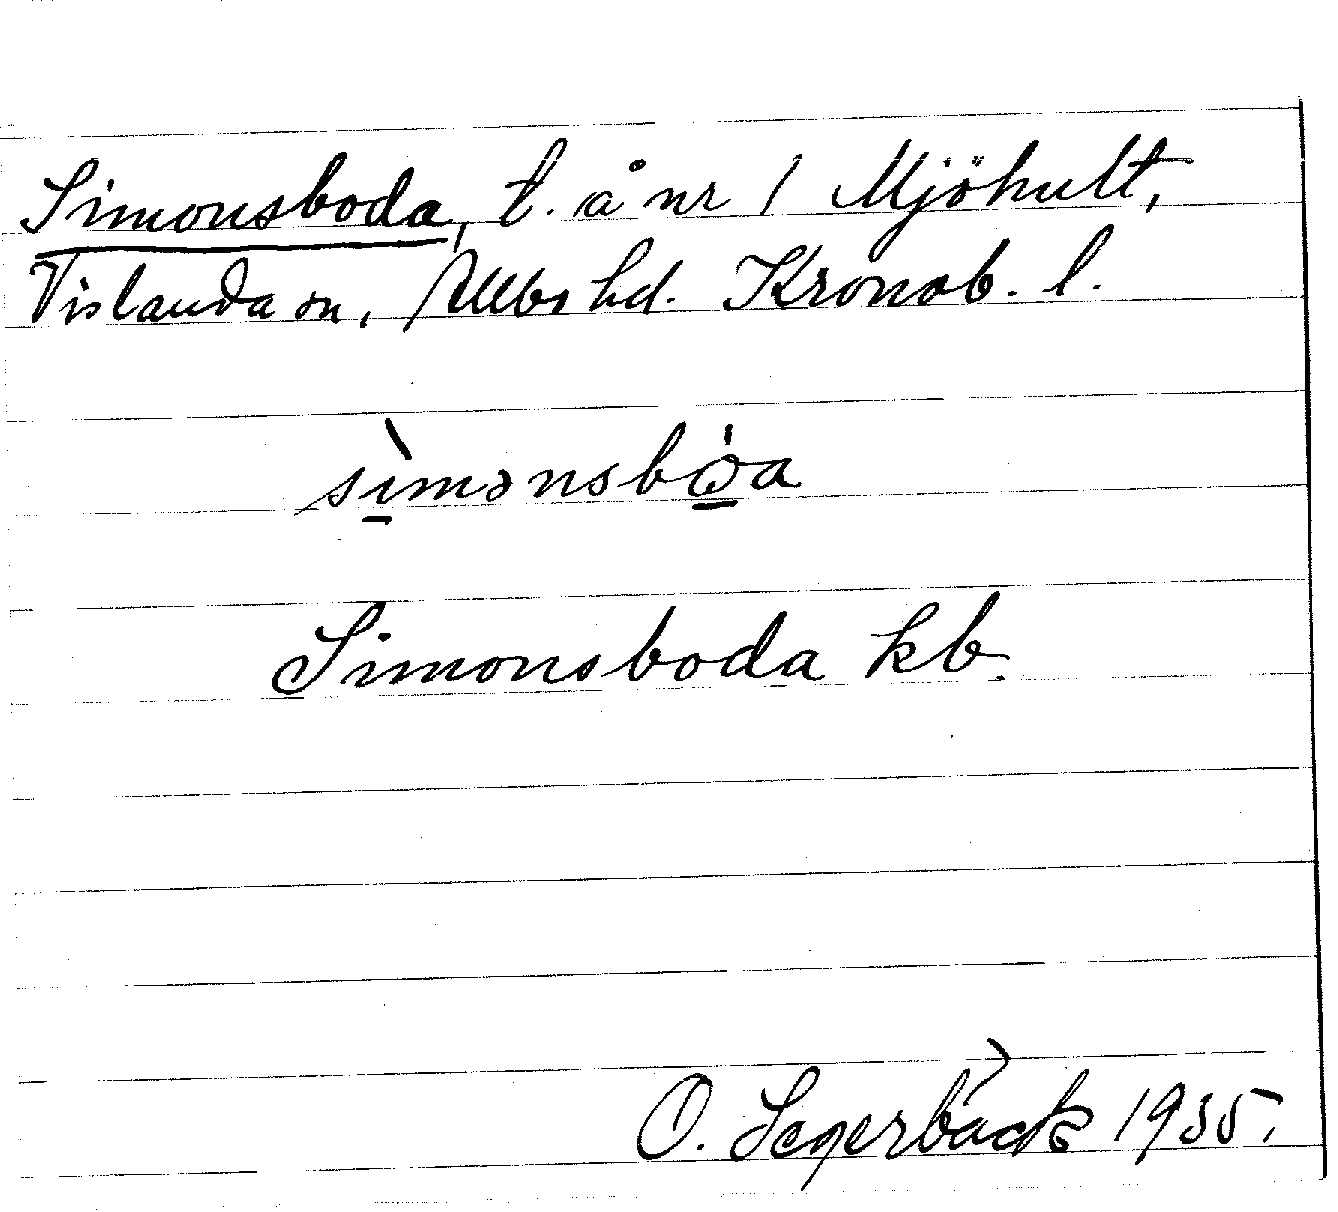 Simonsboda, t. å nr 1 Mjöhult,
Vislanda sn, Allbo hd. Kronob. l.
sìmənsbꙍ̀a
Simonsboda kb.
O. Segerbäck 1935.